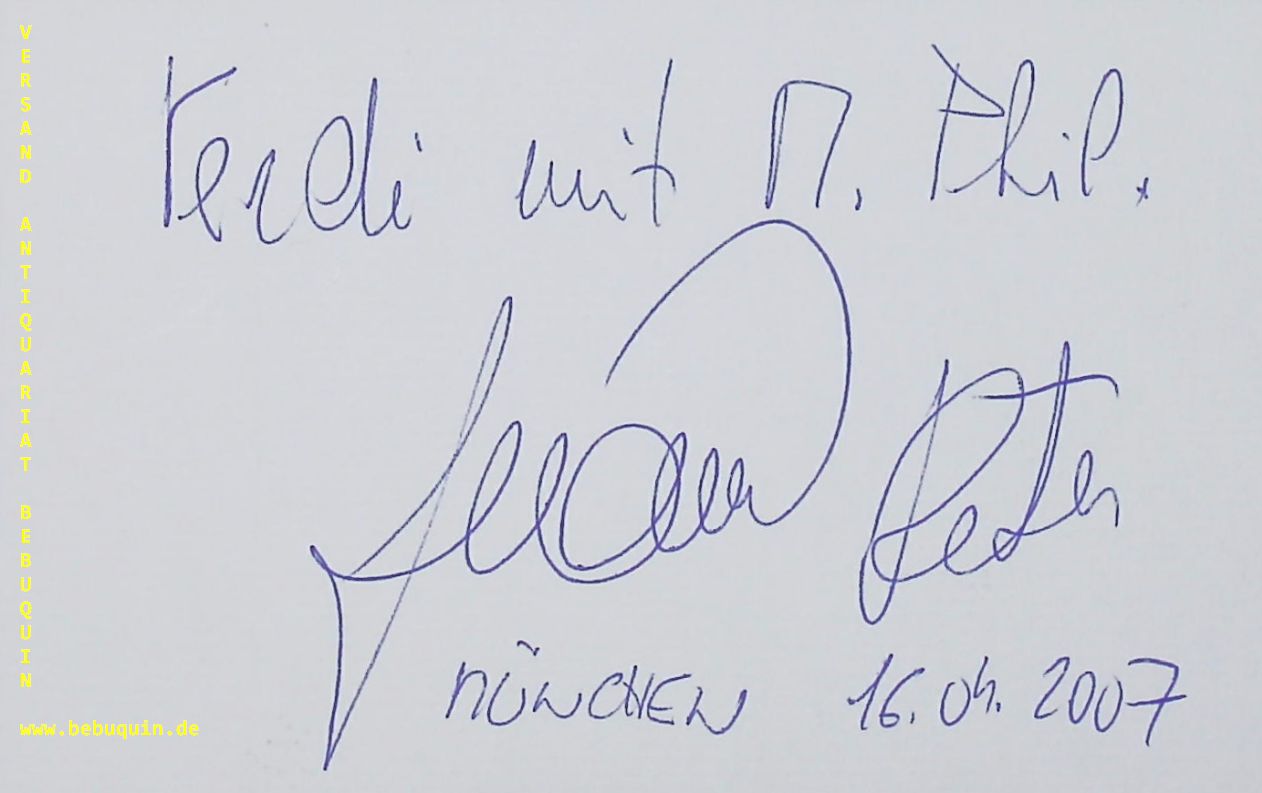 VERSAND ANTIQUARIAT BEBUQUIN
Verdi mit M. Phil.
Peter
MÜNCHEN 16.04.2007
www.bebuquin.de